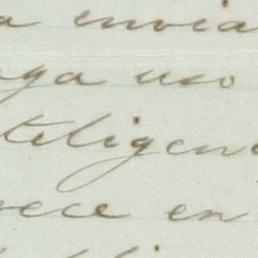 a envia
aga uso
teligen
ece en